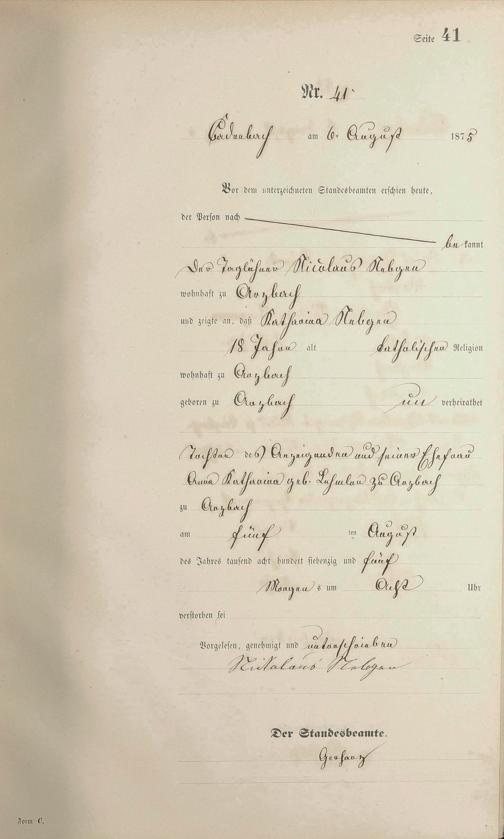 Seite 41
Nr. 41
Cadenbach am 6. August 1875
Vor dem unterzeichneten Standesbeamten erschien heute,
der Person nach
bekannt
Der Taglöhner Nicolaus Nebgen
wohnhaft zu Arzbach
und zeigte an, daß Katharina Nebgen
18 Jahre alt katholischen Religion
wohnhaft zu Arzbach
geboren zu Arzbach un verheirathet
Tochter des Anzeigenden und seiner Ehefrau
Anna Katharina geb. Lehmler zu Arzbach
zu Arzbach
am fünf ten August
des Jahres tausend acht hundert siebenzig und fünf
Morgens um Acht Uhr
verstorben sei
Vorgelesen, genehmigt und unterschrieben
Nikolaus Nebgen
Der Standesbeamte.
Gerharz
Form C.